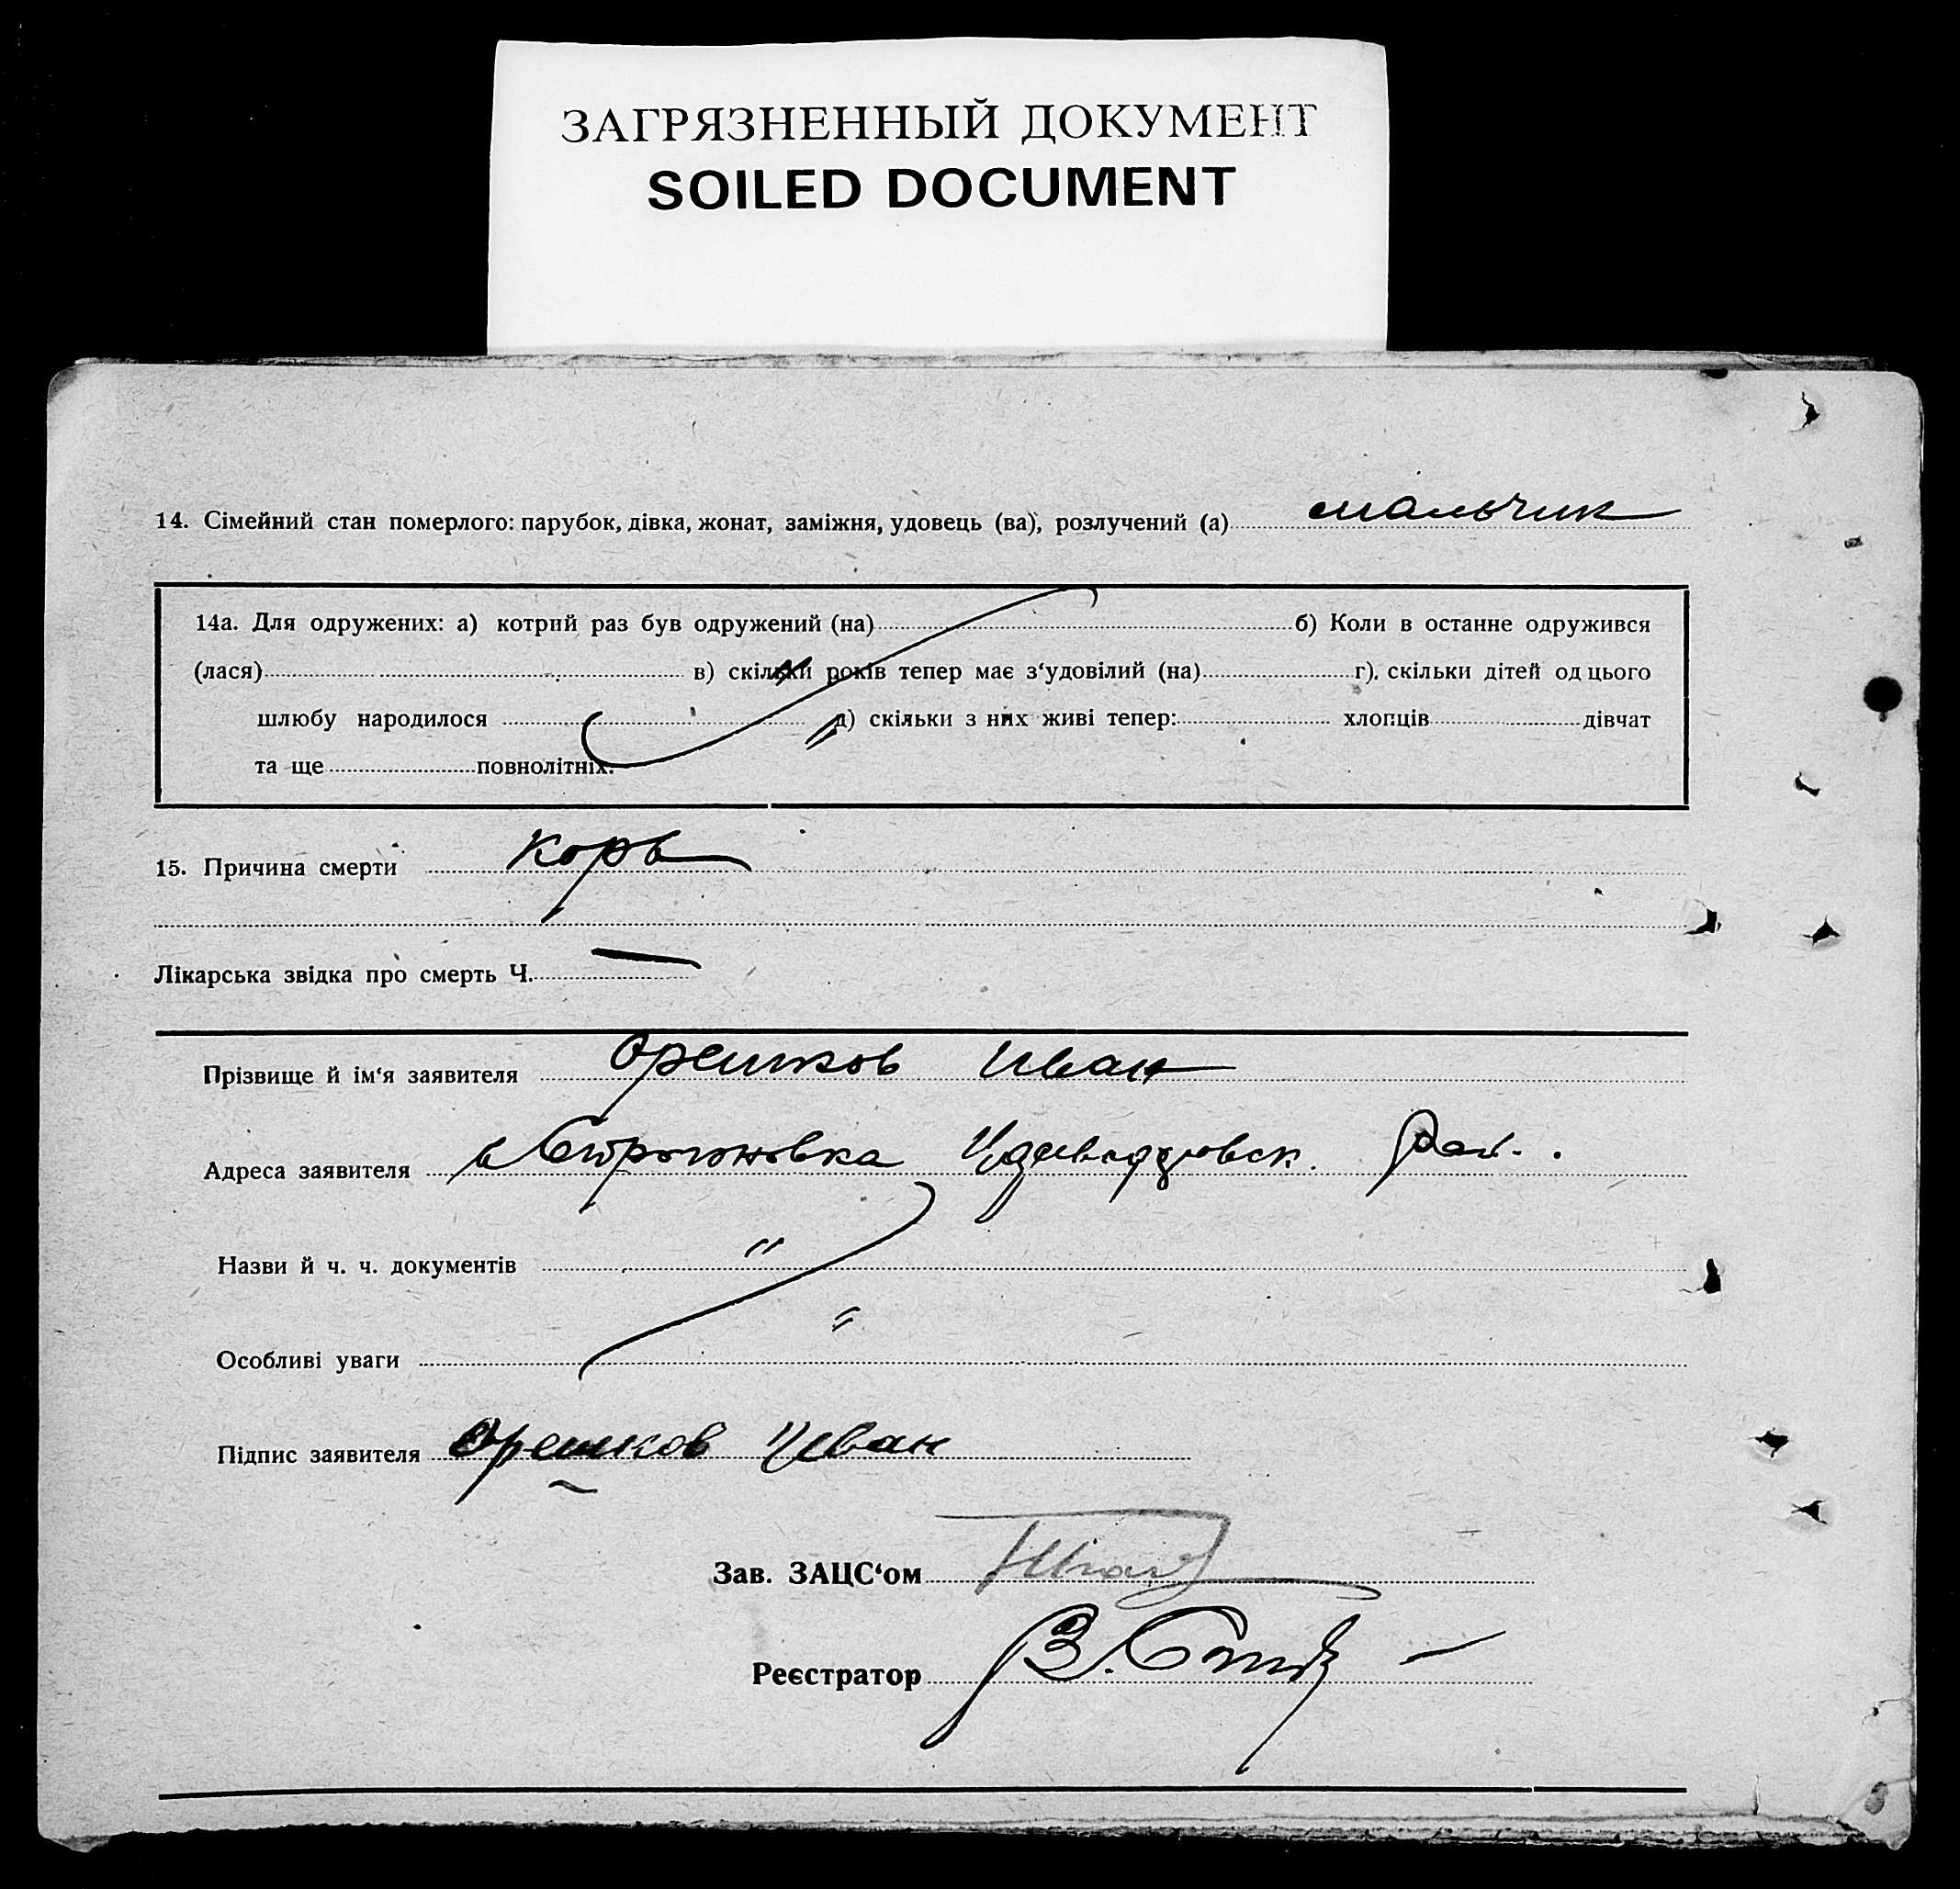 ЗАГРЯЗНЕННЫЙ ДОКУМЕНТ
SOILED DOCUMENT
14. Сімейний стан померлого: парубок, дівка, жонат, заміжня, удовець (ва), розлучений (а) мальчик
14а. Для одружених: а) котрий раз був одружений (на) б) Коли в останнє одружився
(лася) в) скільки років тепер має з‘удовілий (на) г). скільки дітей од цього
шлюбу народилося д) скільки з них живі тепер: хлопців дівчат
та ще повнолітніх.
15. Причина смерти корь
Лікарська звідка про смерть Ч. —
Прізвище й ім‘я заявителя Орешков Иван
Адреса заявителя Раи.
Назви й ч. ч. документів "
Особливі уваги "
Підпис заявителя Орешков Иван
Зав. ЗАЦС‘ом
Реєстратор